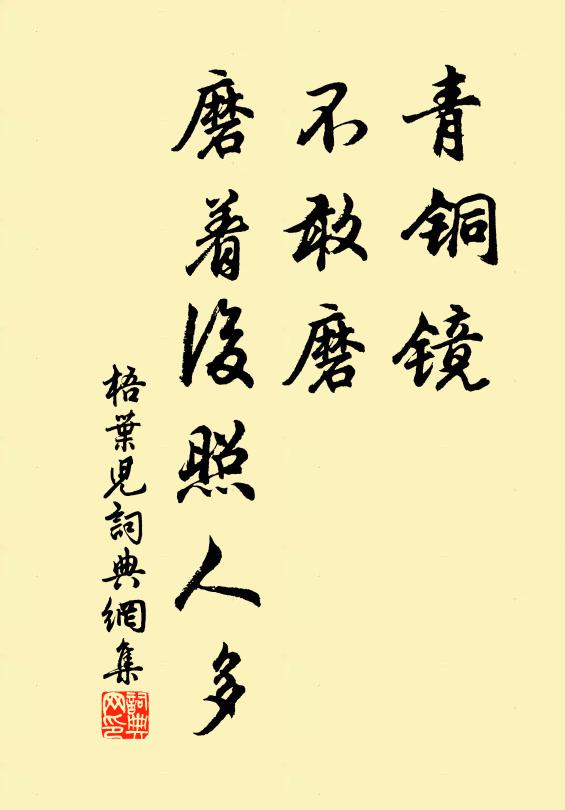 青铜镜
不敢磨
磨着後照人多
梧葉兒詞典網集
詞典
网印